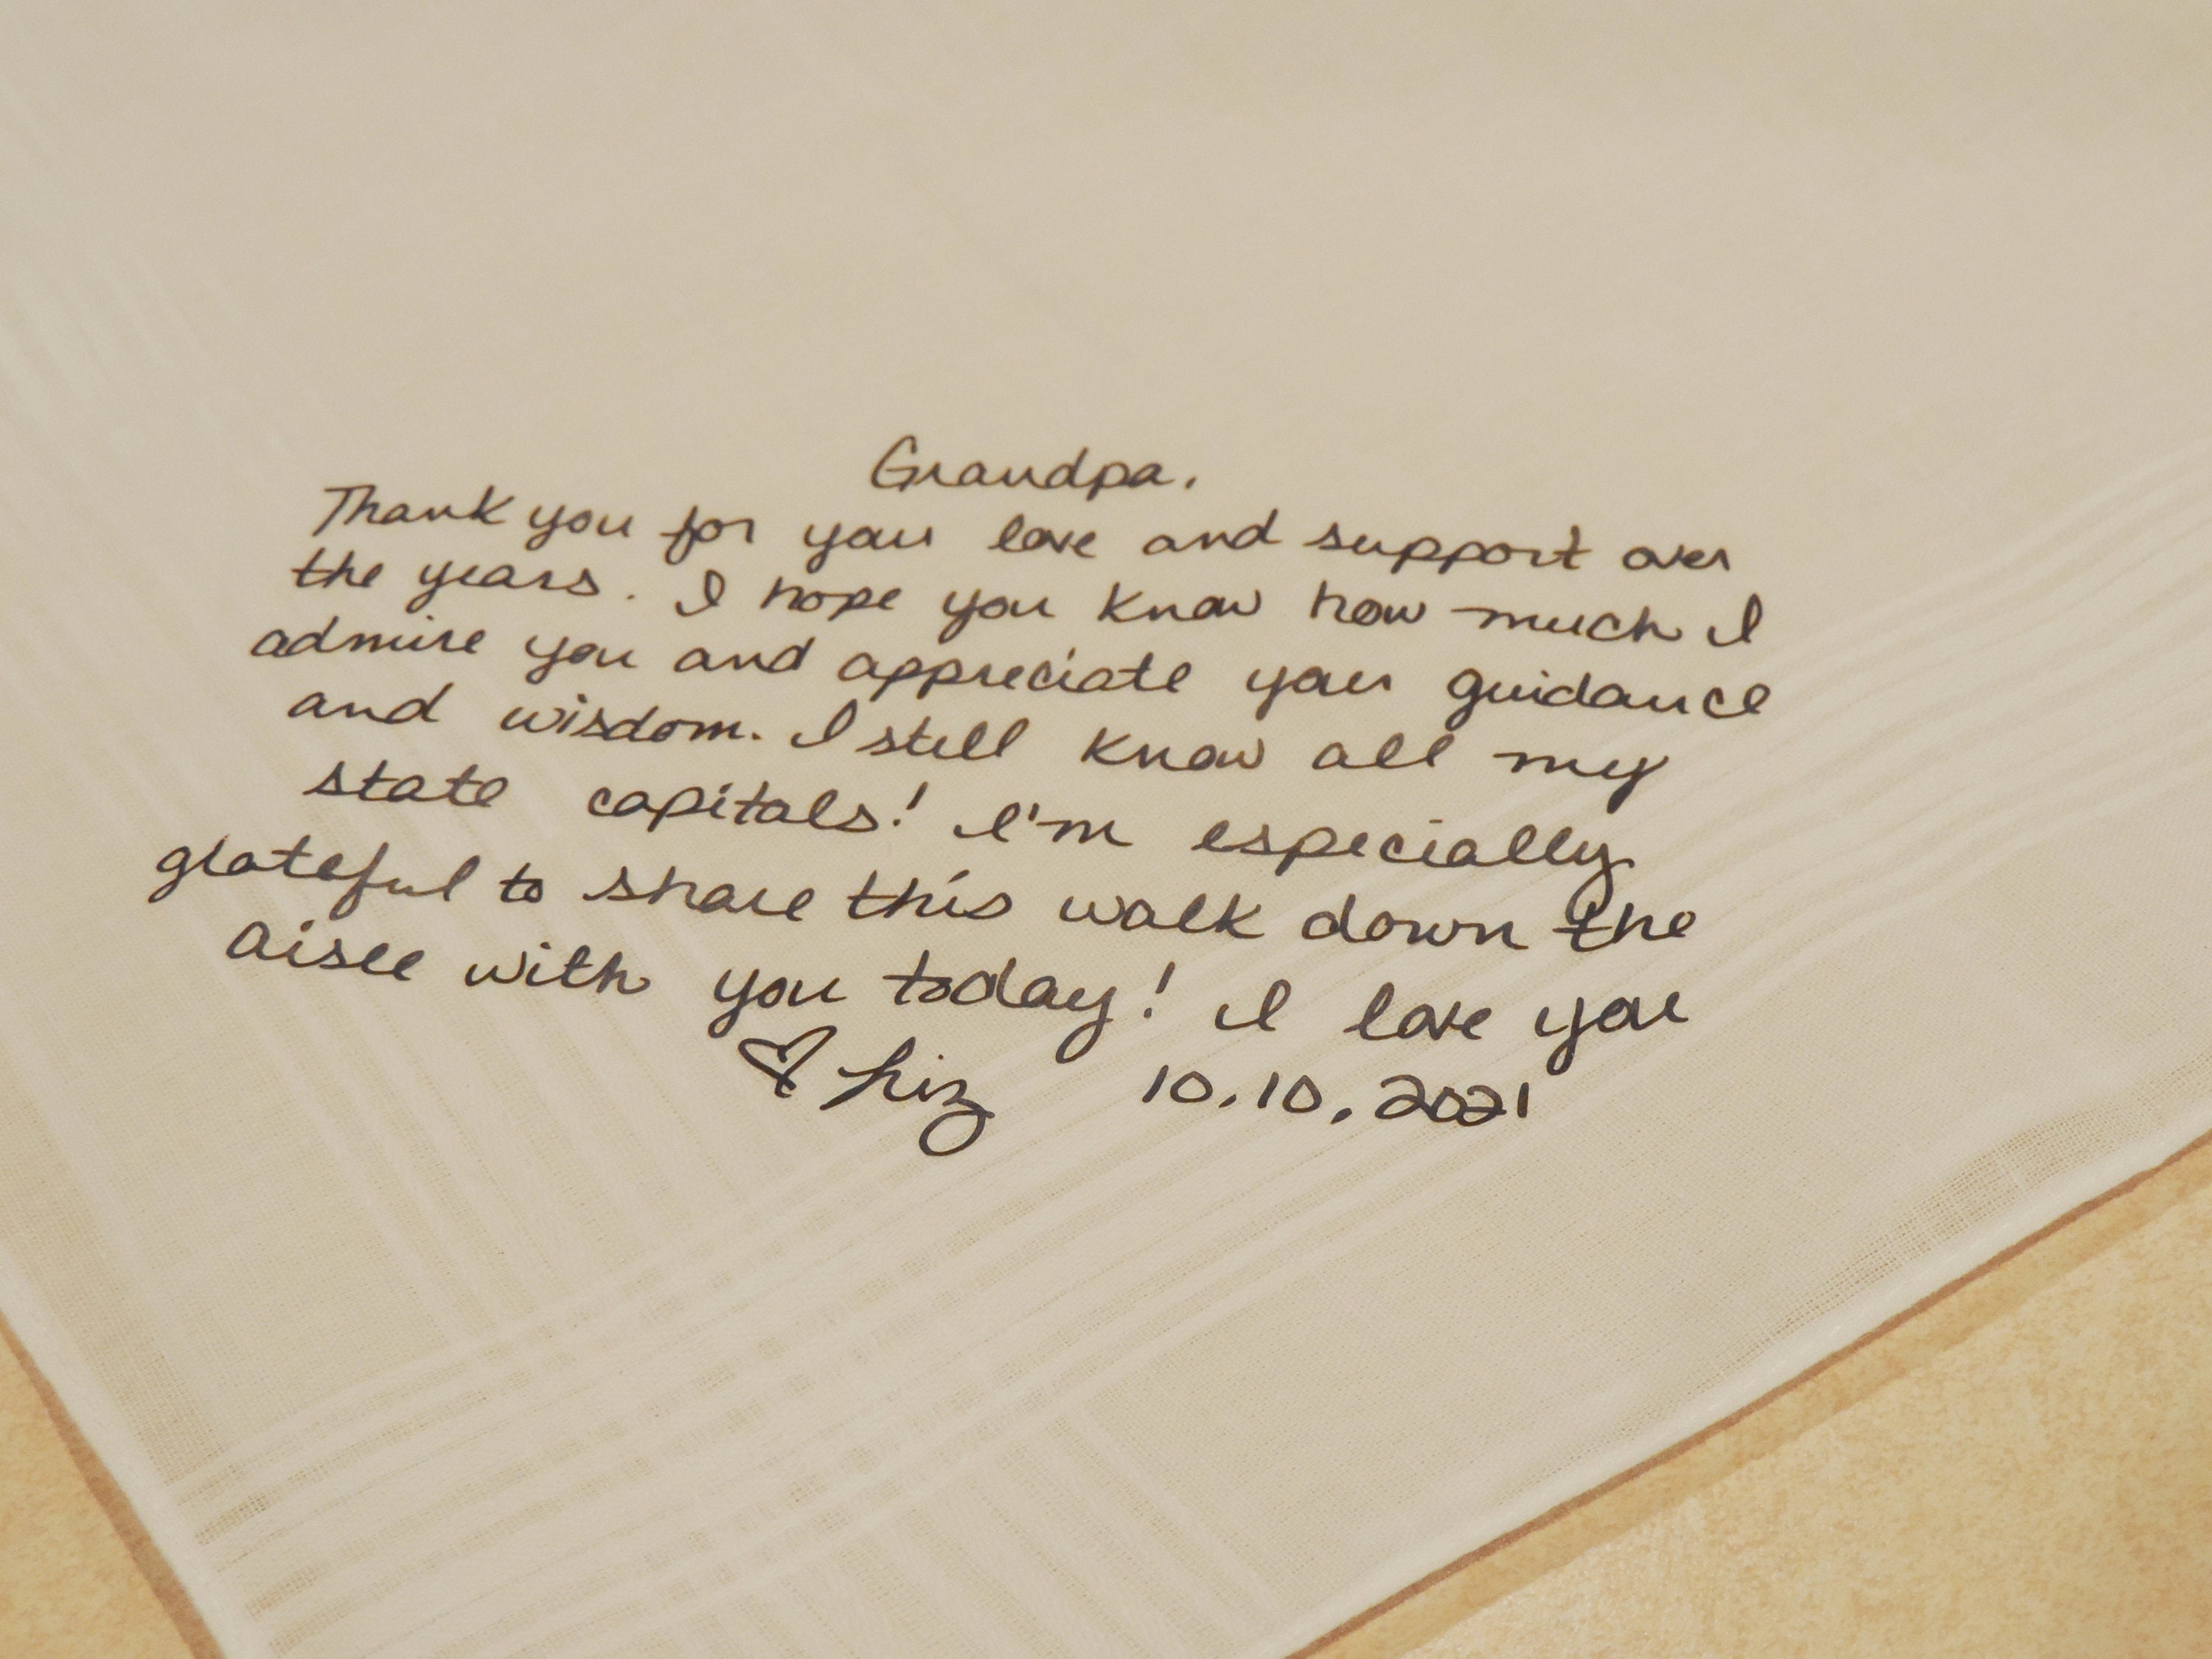 Grandpa,
Thank you for your love and support over
the years. I hope you know how much I
admire you and appreciate your guidance
and wisdom. I still know all my
state capitals! I'm especially
grateful to share this walk down the
aisle with you today! I love you
♡ Liz 10.10.2021